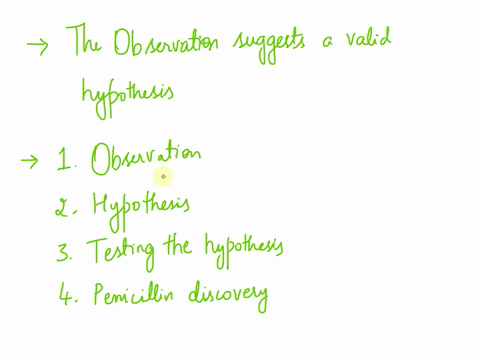 → The Observation suggests a valid
hypothesis
→ 1. Observation
2. Hypothesis
3. Testing the hypothesis
4. Penicillin discovery